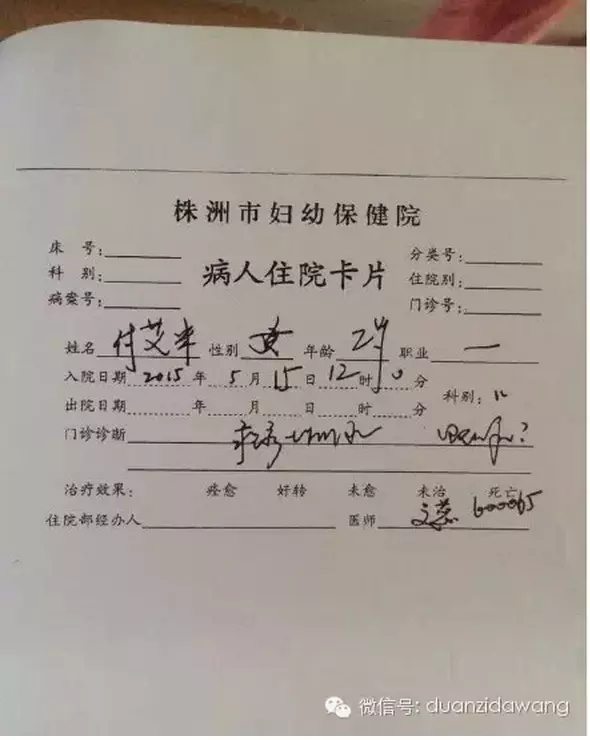 株洲市妇幼保健院
床 号: 分类号:
科 别: 病人住院卡片 住院别:
病案号: 门诊号:
姓名 付艾米 性别 女 年龄 2岁 职业 一
入院日期 2015 年 5 月 15 日 12 时 分
科别: 11
出院日期 年 月 日 时 分
门诊诊断
治疗效果: 痊愈 好转 未愈 未治 死亡
住院部经办人 医师 文蕊 600065
微信号: duanzidawang